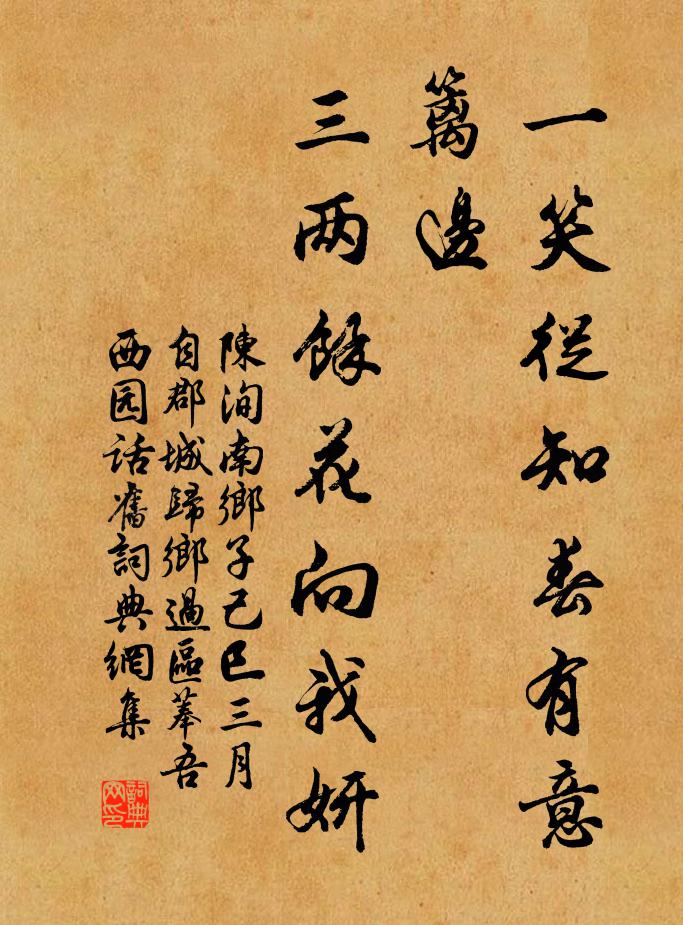 一笑從知春有意
籬邊
三两餘花向我妍
陳洵南鄉子己巳三月
自郡城歸鄉過區菶吾
西园話舊詞典網集
詞典网印